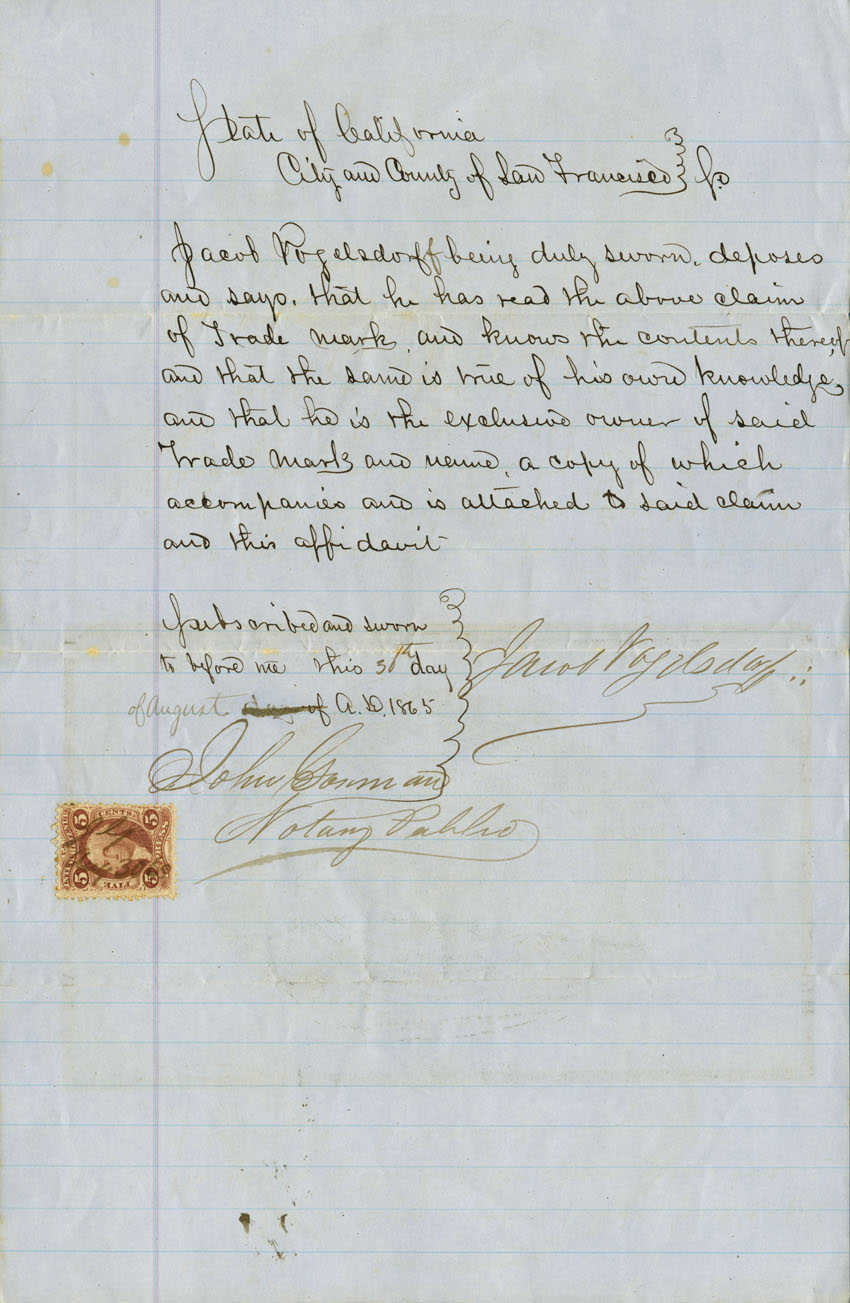 State of California
City and County of San Francisco } Ss
Jacob Vogelsdorff being duly sworn, deposes
and says, that he has read the above claim
of Trade mark, and knows the contents thereof,
and that the same is true of his own knowledge,
and that he is the exclusive owner of said
Trade Mark and name, a copy of which
accompanies and is attached to said claim
and this affidavit
Subscribed and sworn
to before me this 30th day
of August of A.D. 1865
Jacob Vogelsdorff
John Gorman
Notary Public
5 CENTS 5
5 FIVE 5